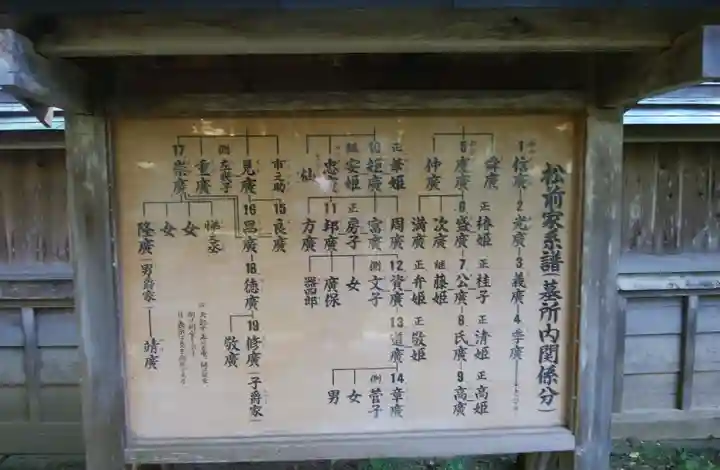 松前家系譜(墓所内関係分)
1信廣―2光廣―3義廣―4季廣
舜廣
5慶廣―6盛廣―7公廣―8氏廣―9高廣
正椿姫
正桂子
正清姫
正高姫
仲廣
次廣
継藤姫
満廣
正華姫
10矩廣
継安姫
忠廣
仙
周廣
正弁姫
正敬姫
富廣
正房子
11邦廣
方廣
12資廣―13道廣
側文子
女
廣保
器四郎
14章廣
側菅子
女
男
市之助
見廣
側左幾子
重廣
17崇廣
15良廣
16昌廣―18徳廣―19修廣(子爵家)
敬廣
女
女
隆廣(男爵家)―靖廣